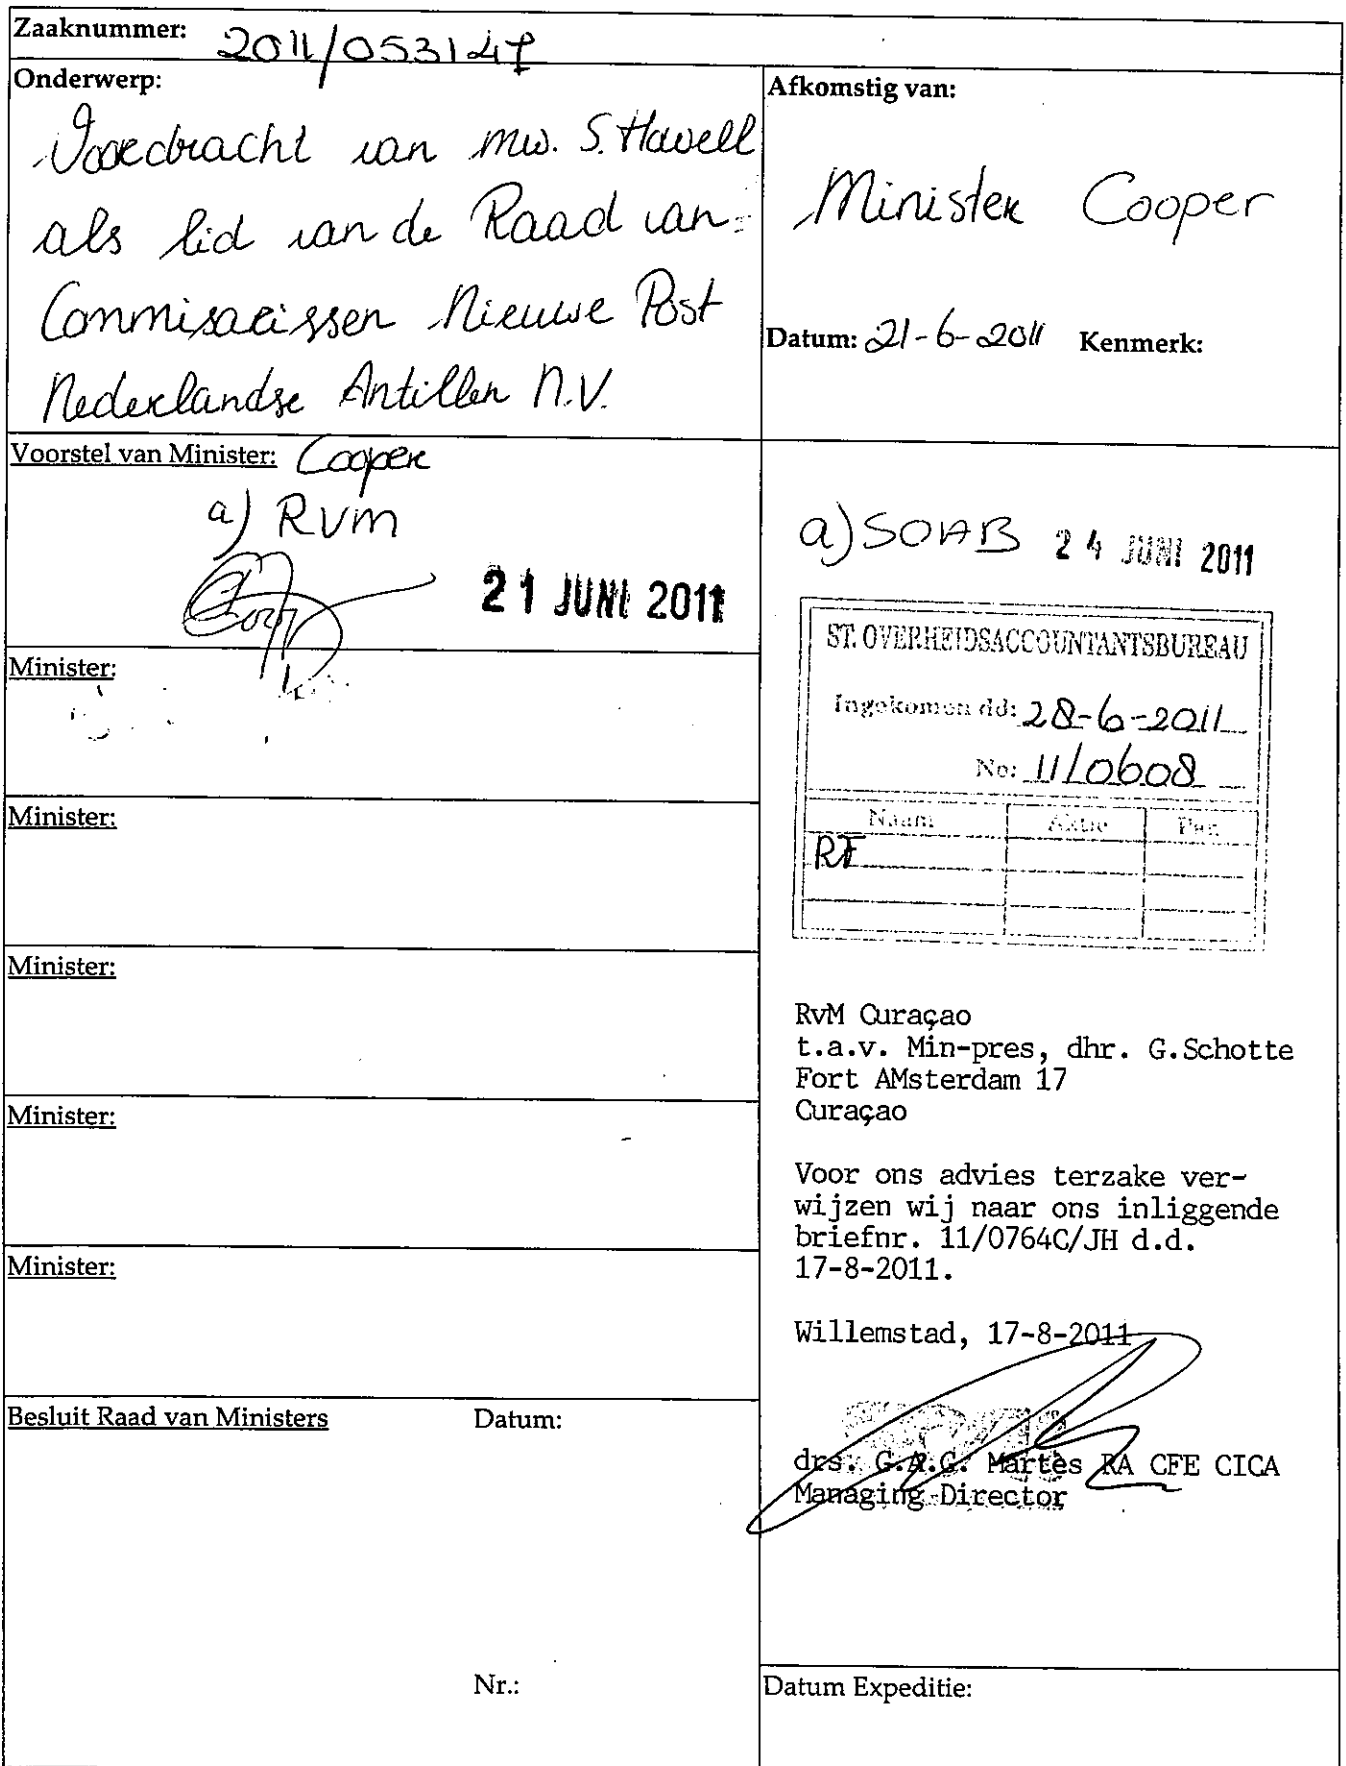 Zaaknummer: 2011/053147
Onderwerp:
Voordracht van mw. S. Hawell
als lid van de Raad van
Commissarissen Nieuwe Post
Nederlandse Antillen N.V.
Afkomstig van:
Minister Cooper
Datum: 21-6-2011 Kenmerk:
Voorstel van Minister: Cooper
a) RVM
21 JUNI 2011
Minister:
Minister:
Minister:
Minister:
Minister:
Besluit Raad van Ministers Datum:
Nr.:
a) SOAB 24 JUNI 2011
ST. OVERHEIDSACCOUNTANTSBUREAU
Ingekomen dd: 28-6-2011
No: 11/0608
Naam Aktie Par.
RF
RvM Curaçao
t.a.v. Min-pres, dhr. G.Schotte
Fort AMsterdam 17
Curaçao
Voor ons advies terzake ver-
wijzen wij naar ons inliggende
briefnr. 11/0764C/JH d.d.
17-8-2011.
Willemstad, 17-8-2011
drs. G.A.G. Martes RA CFE CICA
Managing Director
Datum Expeditie: